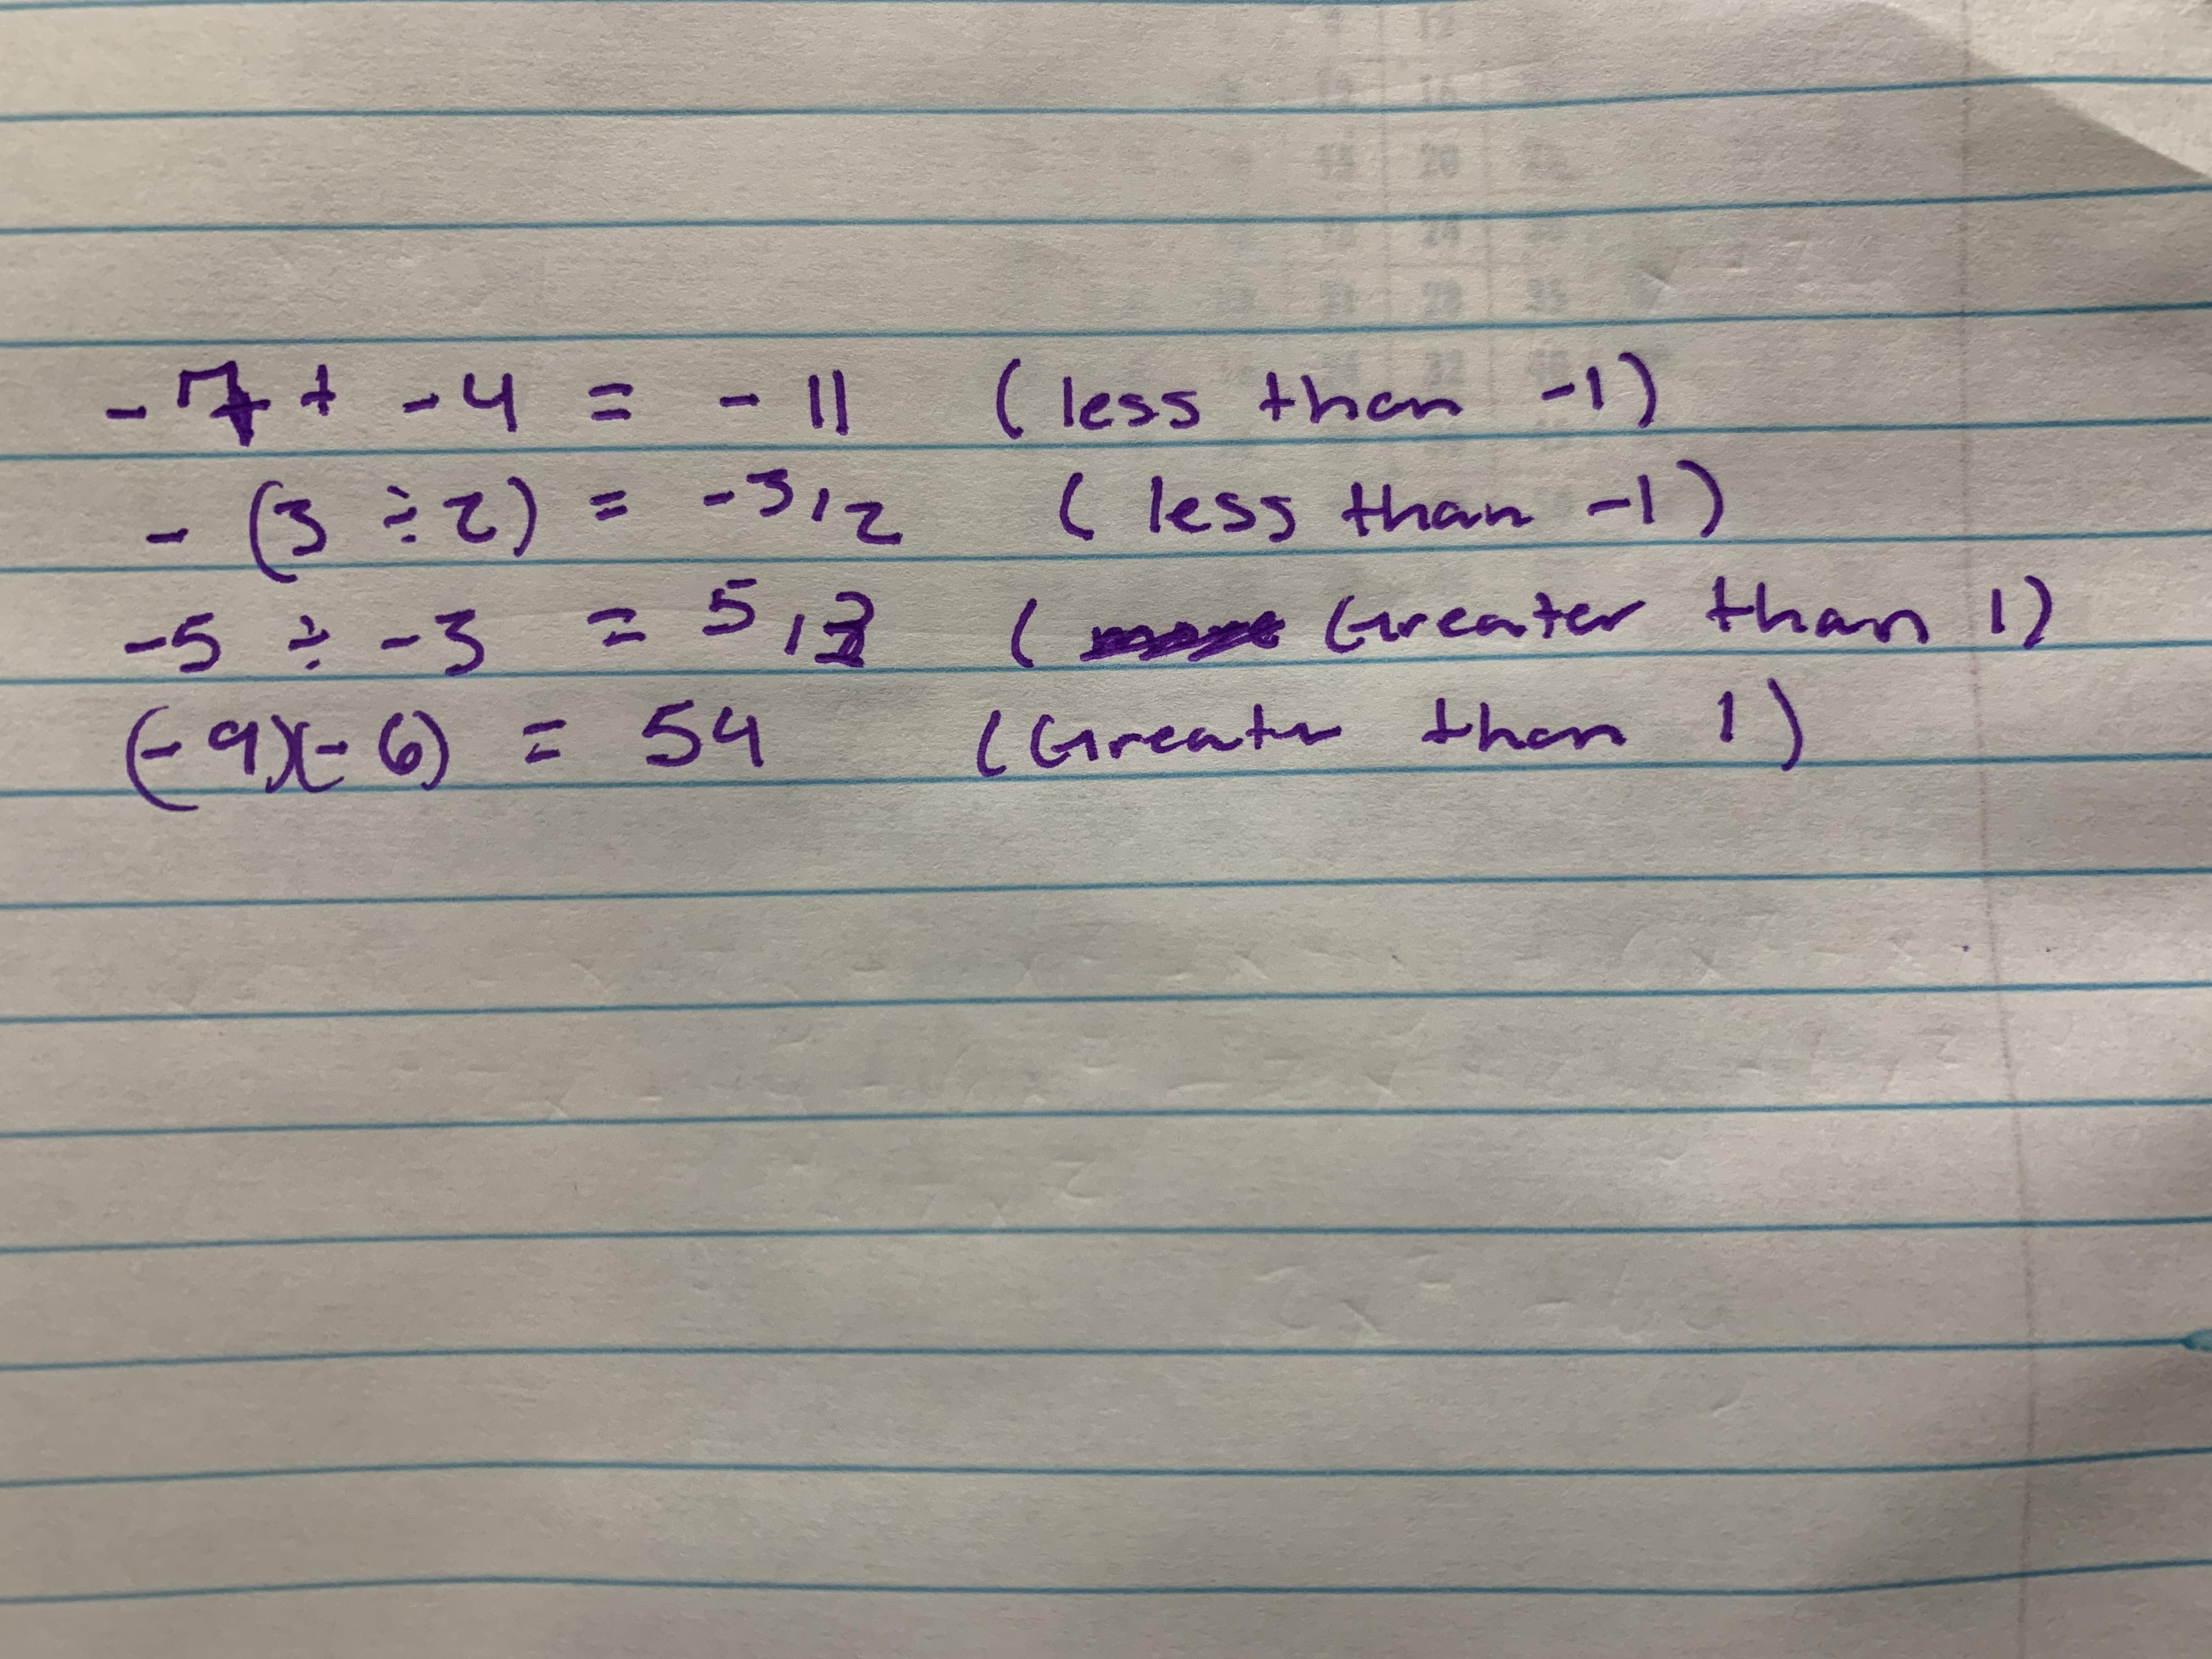 -7 + -4 = -11 (less than -1)
- (3 ÷ 2) = -3/2 (less than -1)
-5 ÷ -3 = 5/3 (Greater than 1)
(-9)(-6) = 54 (Greater than 1)